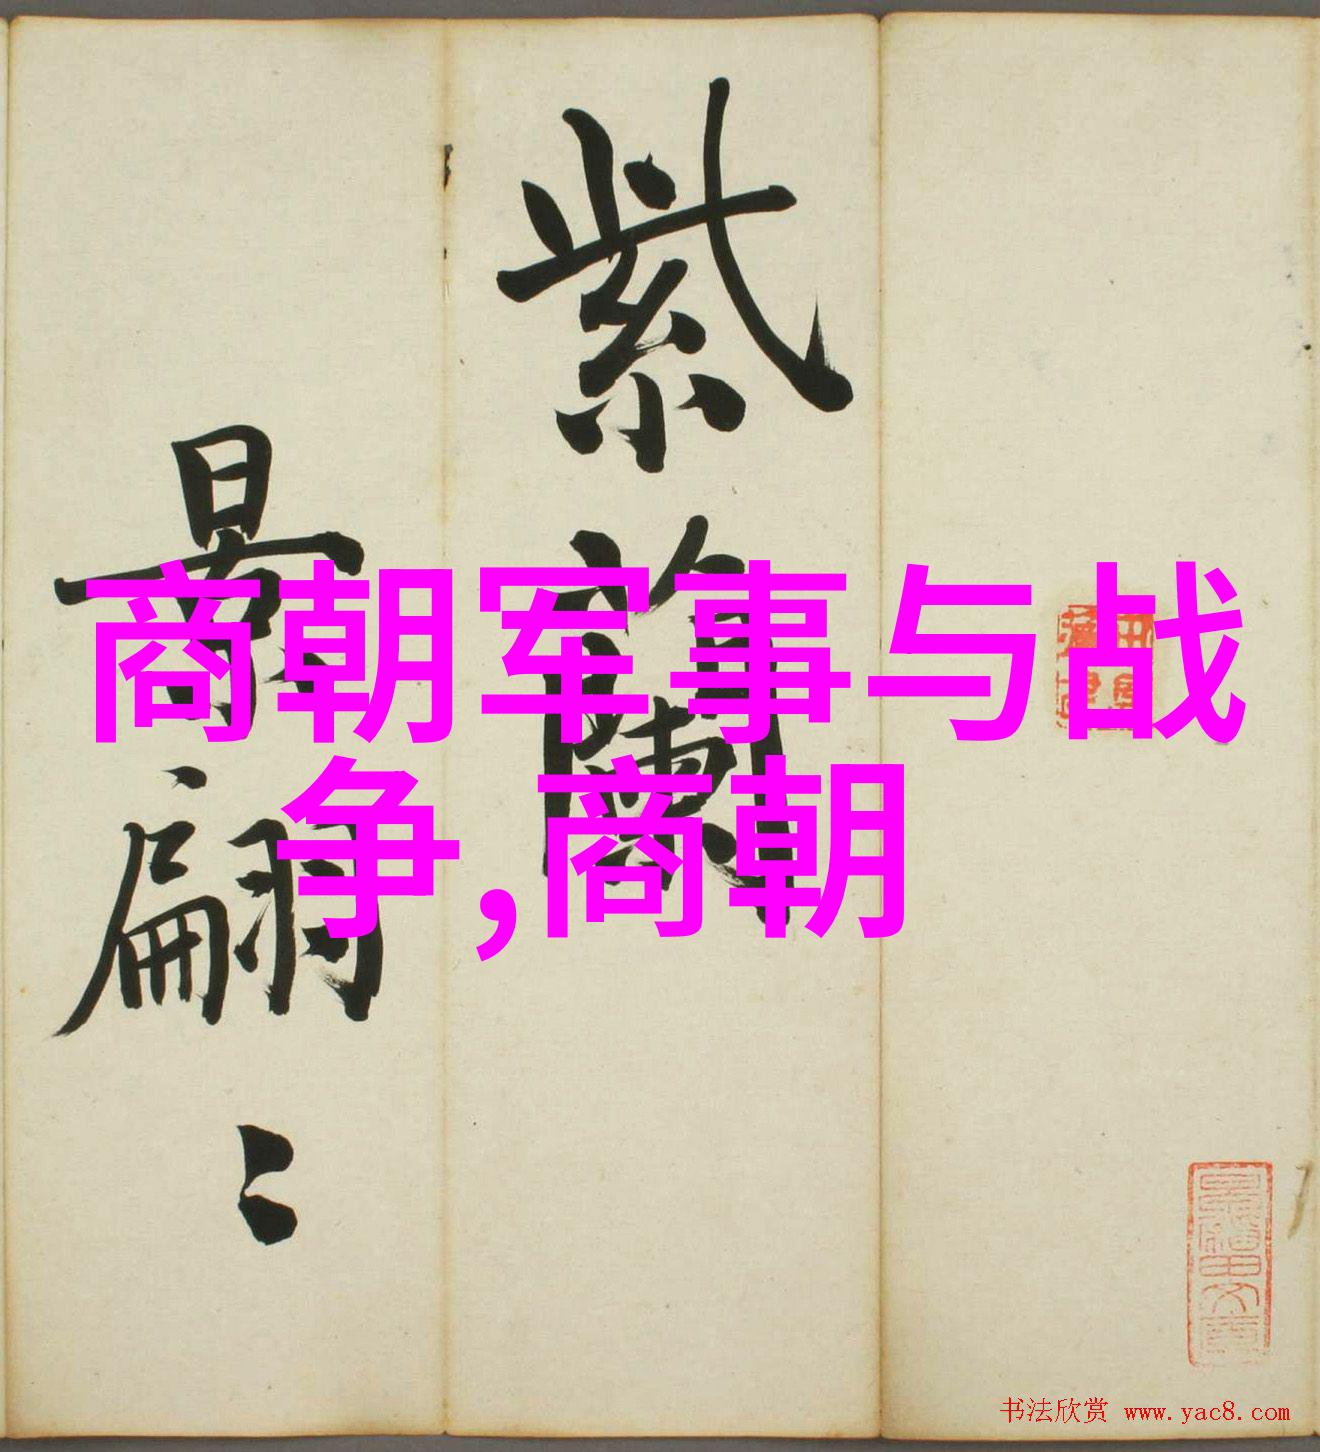 紫蘭
最翩々
商朝军事与战
争,商朝
书法欣赏 www.yac8.com